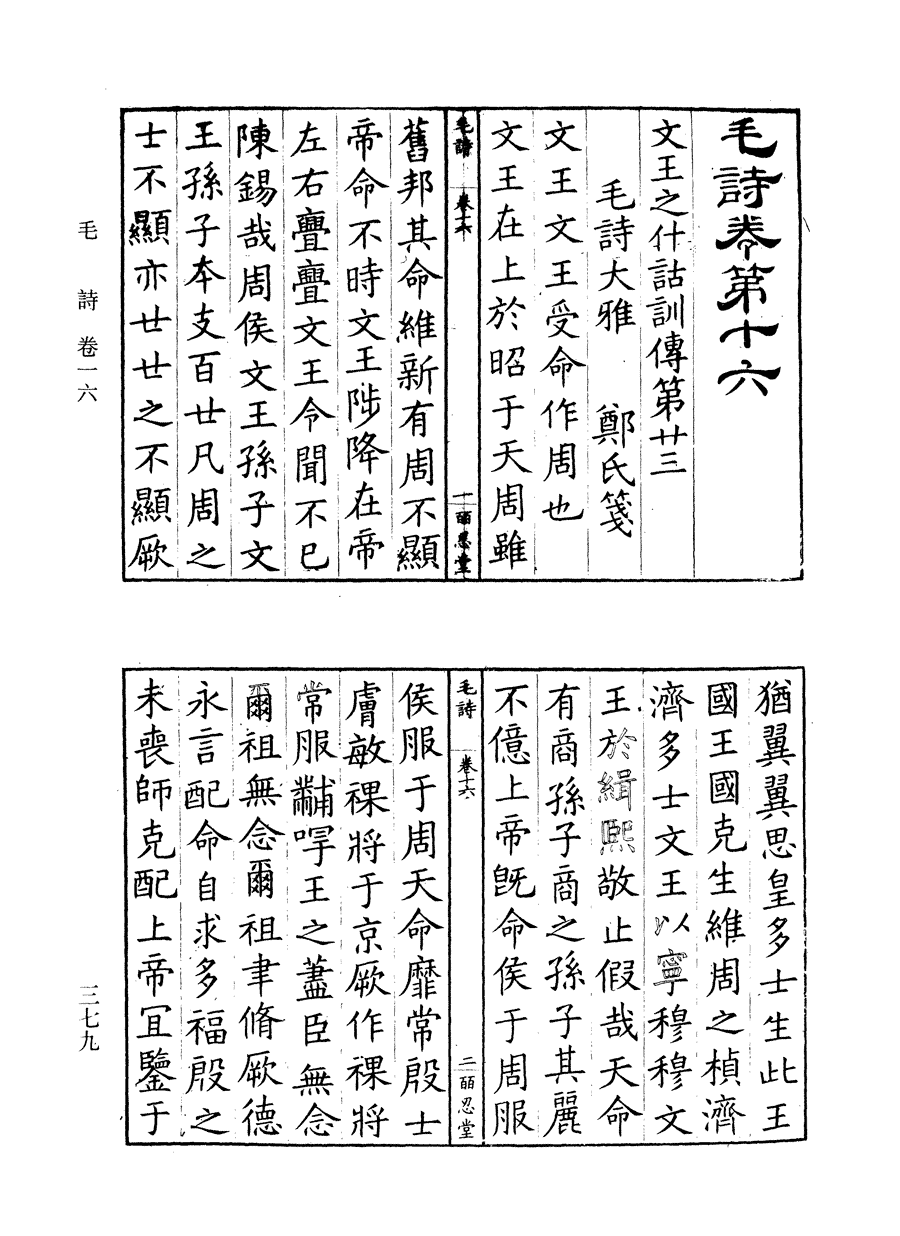 毛詩卷第十六
文王之什詁訓傳第廿三
毛詩大雅 鄭氏箋
文王文王受命作周也
文王在上於昭于天周雖
毛詩 卷十六 一 皕忍堂
舊邦其命維新有周不顯
帝命不時文王陟降在帝
左右亹亹文王令聞不已
陳錫哉周侯文王孫子文
王孫子本支百廿凡周之
士不顯亦廿廿之不顯厥
毛詩 卷一六
猶翼翼思皇多士生此王
國王國克生維周之楨濟
濟多士文王以寧穆穆文
王於緝熙敬止假哉天命
有商孫子商之孫子其麗
不億上帝既命侯于周服
毛詩 卷十六 二 皕忍堂
侯服于周天命靡常殷士
膚敏祼將于京厥作祼將
常服黼冔王之藎臣無念
爾祖無念爾祖聿脩厥德
永言配命自求多福殷之
未喪師克配上帝宜鑒于
三七九